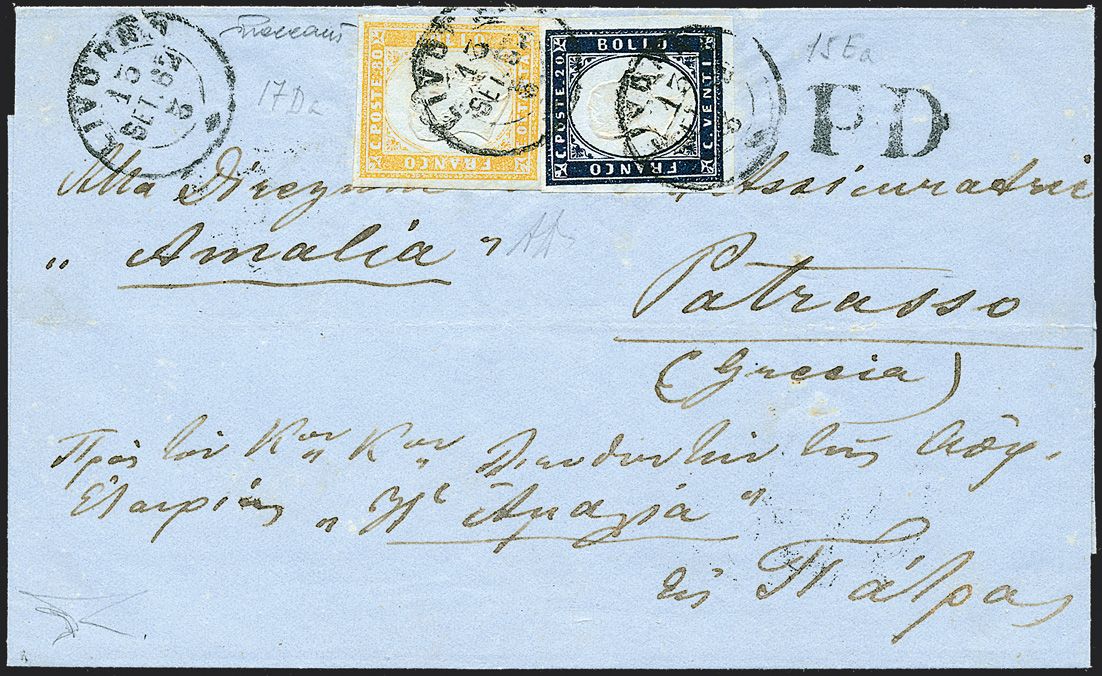 LIVORNO
13
SET. 62
17Da
BOLLO
C. POSTE 80
C. OTTANTA
FRANCO
LIVORNO
13
SET. 62
BOLLO
C. POSTE 20
C. VENTI
FRANCO
15Ea
PD
Alla Direzione Assicuratrice
„ Amalia "
Patrasso
(Grecia)
Πρὸς τὸν Κον Κον Διευθυντὴν τῆς Ἀσφ.
Ἑταιρίας „Ἡ Ἀμαλία"
εἰς Πάτρας